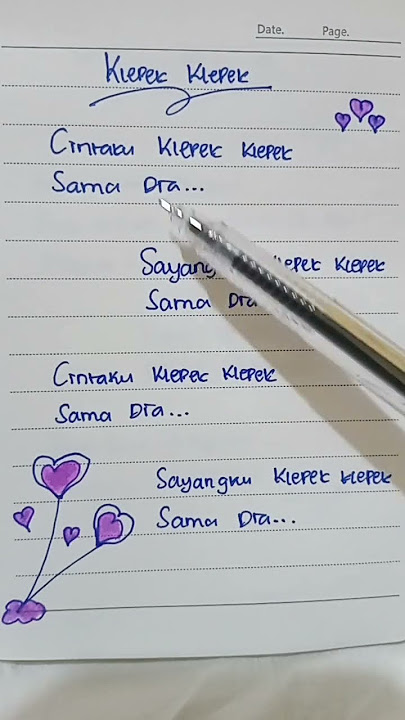 Date. Page.
Klepek Klepek
Cintaku Klepek Klepek
Sama Dia...
Klepek
Sama
Cintaku Klepec Klepek
Sama Dia...
Sayangku Klepek Klepek
Sama Dia...